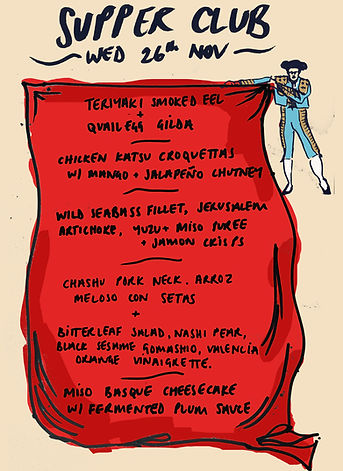 SUPPER CLUB
WED 26th NOV
TERIYAKI SMOKED EEL
+
QUAIL EGG GILDA
CHICKEN KATSU CROQUETTAS
W/ MANGO + JALAPEÑO CHUTNEY
WILD SEABASS FILLET, JERUSALEM
ARTICHOKE, YUZU + MISO PUREE
+ JAMON CRISPS
CHASHU PORK NECK. ARROZ
MELOSO CON SETAS
+
BITTERLEAF SALAD, NASHI PEAR,
BLACK SESAME GOMASHIO, VALENCIA
ORANGE VINAIGRETTE.
MISO BASQUE CHEESECAKE
W/ FERMENTED PLUM SAUCE